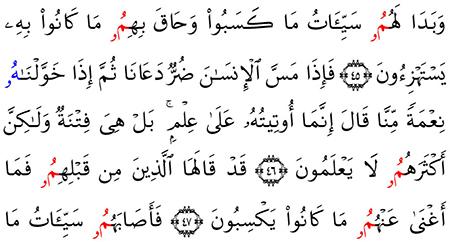 وَبَدَا لَهُمُۥ سَيِّـَٔاتُ مَا كَسَبُوا۟ وَحَاقَ بِهِمُۥ مَا كَانُوا۟ بِهِۦ
يَسْتَهْزِءُونَ ٤٥ فَإِذَا مَسَّ ٱلْإِنسَـٰنَ ضُرٌّ دَعَانَا ثُمَّ إِذَا خَوَّلْنَـٰهُۥ
نِعْمَةً مِّنَّا قَالَ إِنَّمَا أُوتِيتُهُۥ عَلَىٰ عِلْمٍۭ ۚ بَلْ هِىَ فِتْنَةٌ وَلَـٰكِنَّ
أَكْثَرَهُمُۥ لَا يَعْلَمُونَ ٤٦ قَدْ قَالَهَا ٱلَّذِينَ مِن قَبْلِهِمُۥ فَمَا
أَغْنَىٰ عَنْهُمُۥ مَا كَانُوا۟ يَكْسِبُونَ ٤٧ فَأَصَابَهُمُۥ سَيِّـَٔاتُ مَا